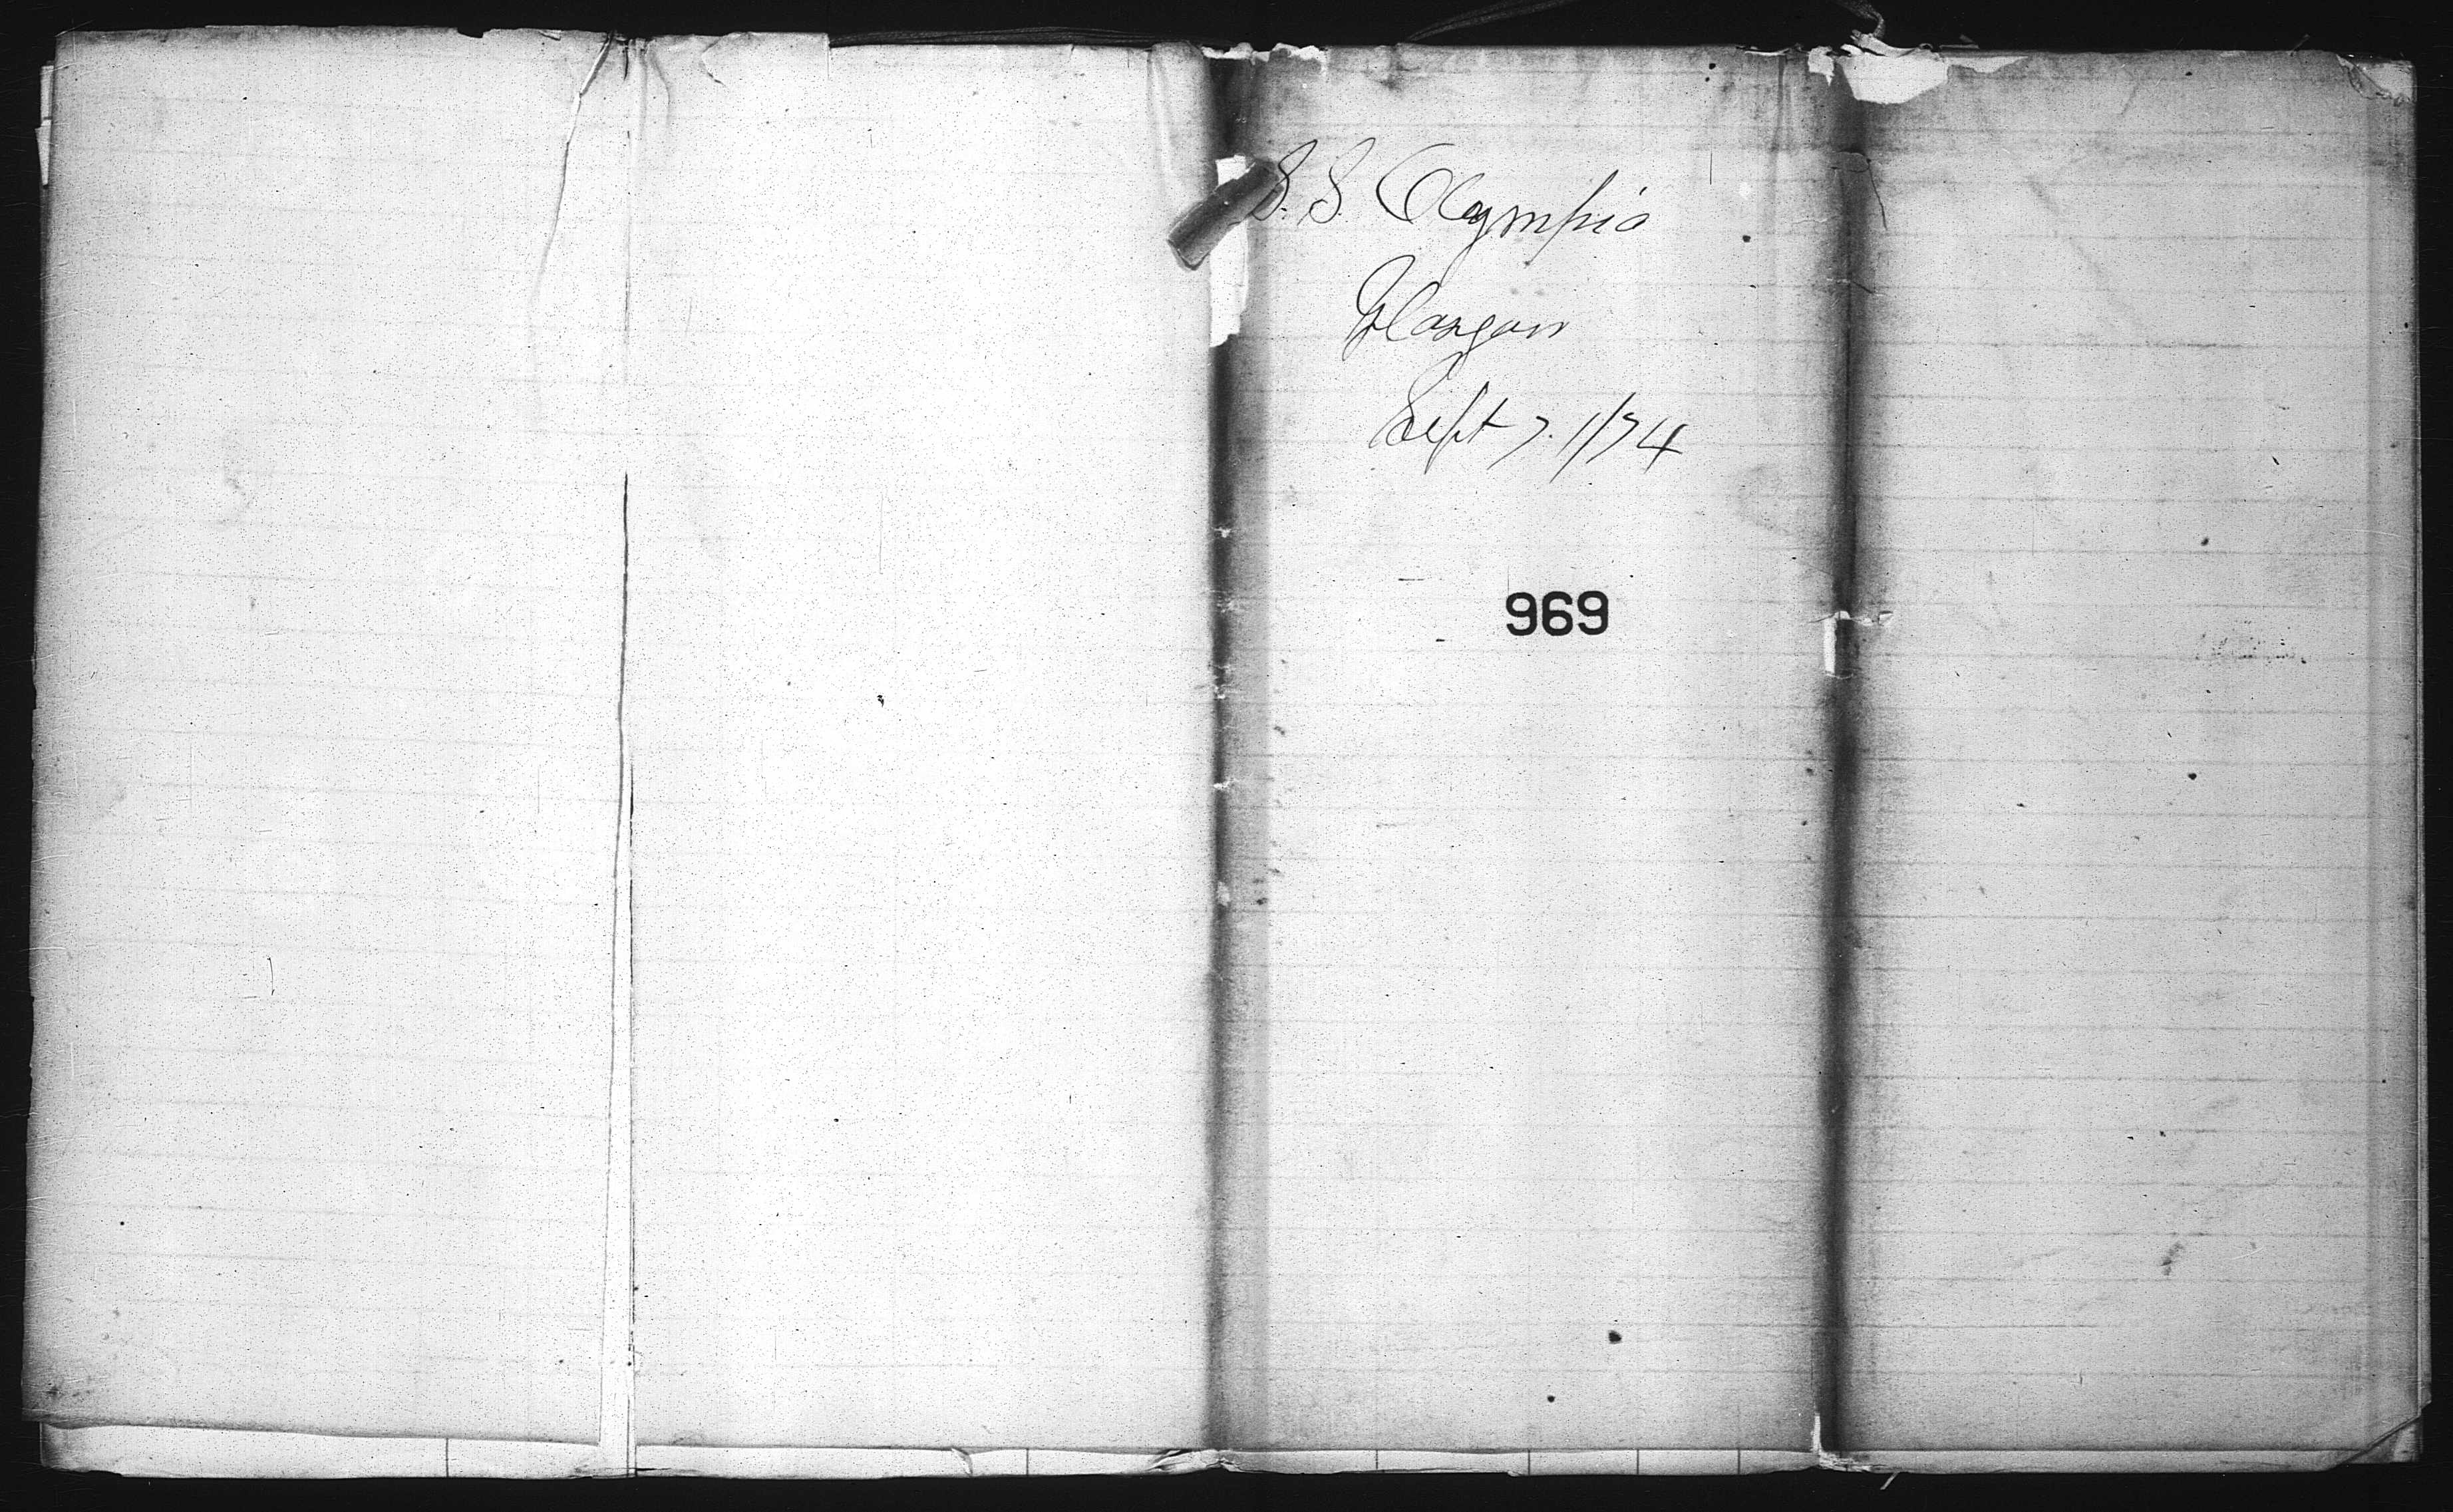 S.S. Olympia
Glasgow
Sept 7. 1/74
969